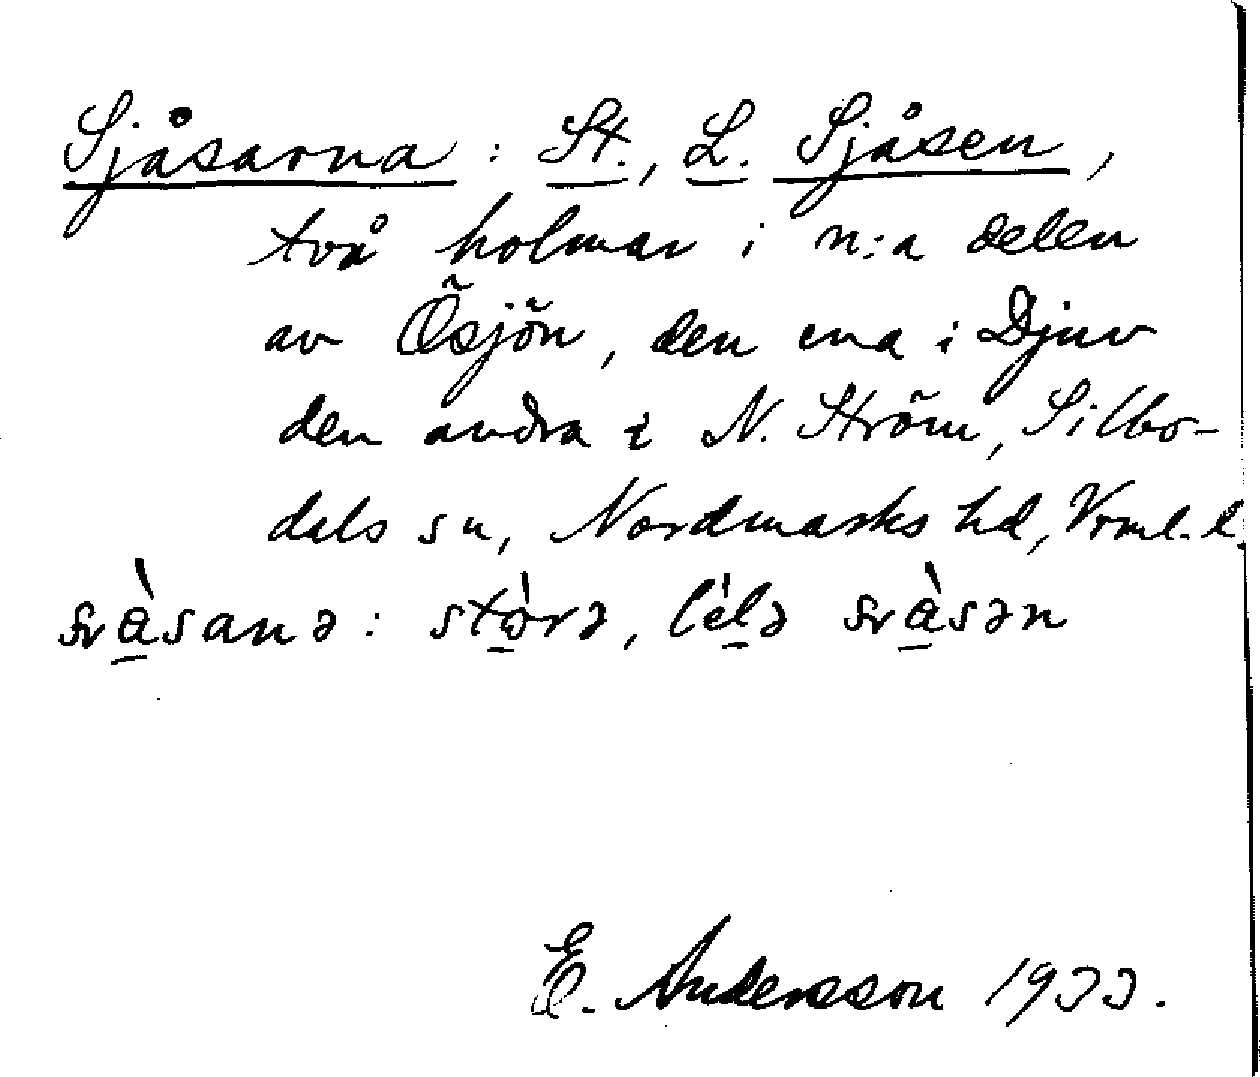 Sjåsarna : St., L. Sjåsen,
två holmar i n:a delen
av Ösjön, den ena i Djuv
den andra i N. Ström, Silbo-
dals sn, Nordmarks hd, Vrml. l.
: stòrə, lélə
E. Andersson 1933.